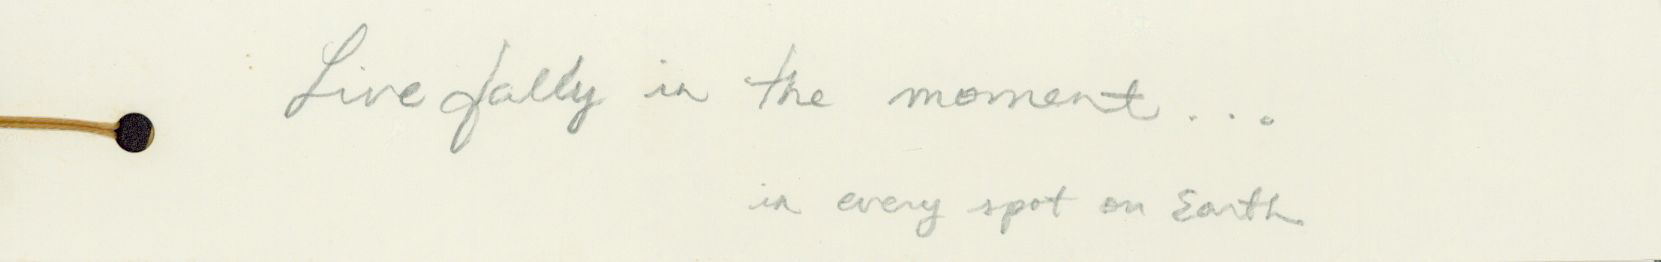 Live fully in the moment...
in every spot on Earth.